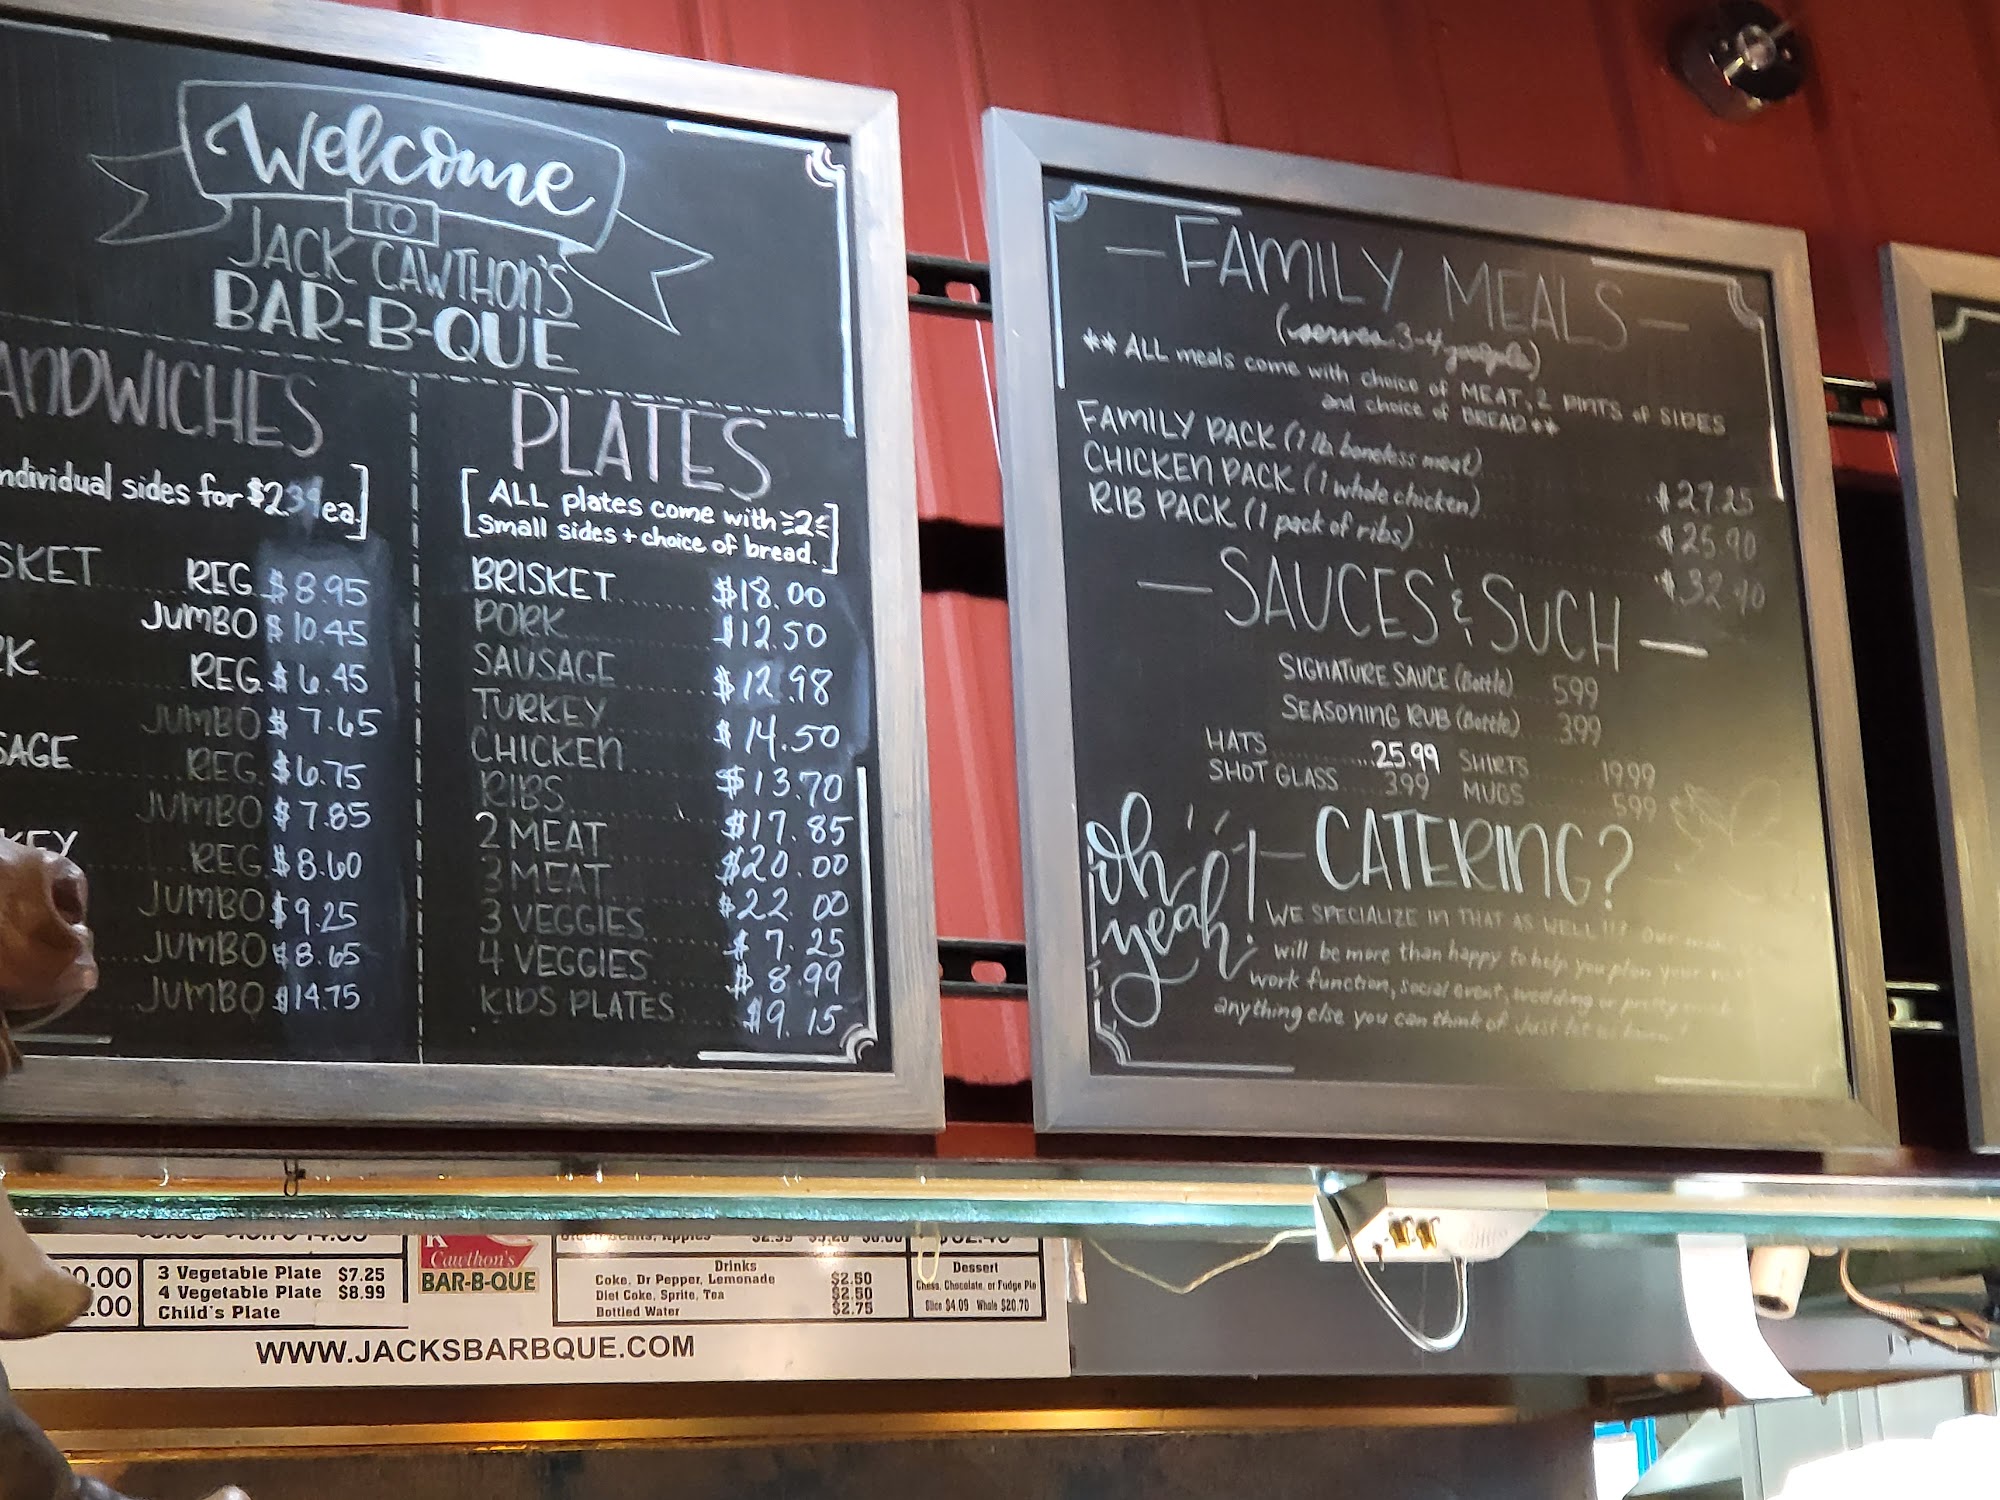 Welcome
TO
JACK CAWTHON'S
BAR-B-QUE
ANDWICHES
ndividual sides for $2.39 ea.]
SKET REG $8.95
JUMBO $10.45
RK REG. $6.45
JUMBO $7.65
SAGE REG. $6.75
JUMBO $7.85
KEY REG. $8.60
JUMBO $9.25
JUMBO $8.65
JUMBO $14.75
PLATES
[ALL plates come with 2
small sides + choice of bread.]
BRISKET $18.00
PORK $12.50
SAUSAGE $12.98
TURKEY $14.50
CHICKEN $13.70
RIBS $17.85
2 MEAT $20.00
3 MEAT $22.00
3 VEGGIES $7.25
4 VEGGIES $8.99
KIDS PLATES $9.15
— FAMILY MEALS —
(serves 3-4 people)
** ALL meals come with choice of MEAT, 2 PINTS of SIDES
and choice of BREAD **
FAMILY PACK (1 lb boneless meat) $27.25
CHICKEN PACK (1 whole chicken) $25.90
RIB PACK (1 pack of ribs) $32.90
— SAUCES & SUCH —
SIGNATURE SAUCE (Bottle) 5.99
SEASONING RUB (Bottle) 3.99
HATS 25.99 SHIRTS 19.99
SHOT GLASS 3.99 MUGS 5.99
oh yeah!
— CATERING?
WE SPECIALIZE IN THAT AS WELL!!! Our
will be more than happy to help you plan your
work function, social event, wedding or pretty much
anything else you can think of. Just let us know!
0.00
.00
3 Vegetable Plate $7.25
4 Vegetable Plate $8.99
Child's Plate
K
Cawthon's
BAR-B-QUE
Apples $2.99
Drinks
Coke, Dr Pepper, Lemonade $2.50
Diet Coke, Sprite, Tea $2.50
Bottled Water $2.75
Dessert
Chess, Chocolate, or Fudge Pie
Slice $4.09 Whole $20.70
WWW.JACKSBARBQUE.COM